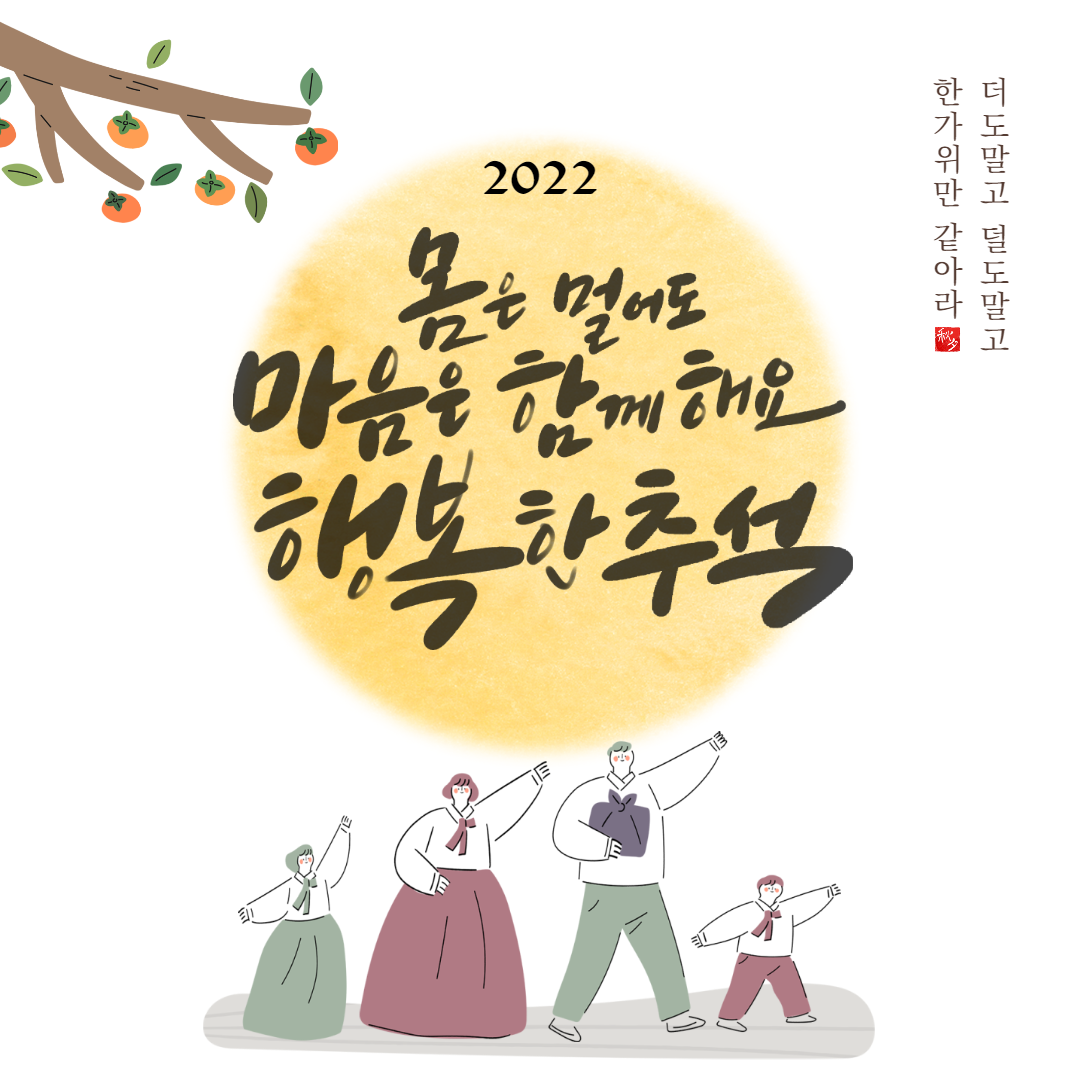 2022
몸은 멀어도
마음은 함께해요
행복한추석
더도말고 덜도말고
한가위만 같아라
秋夕